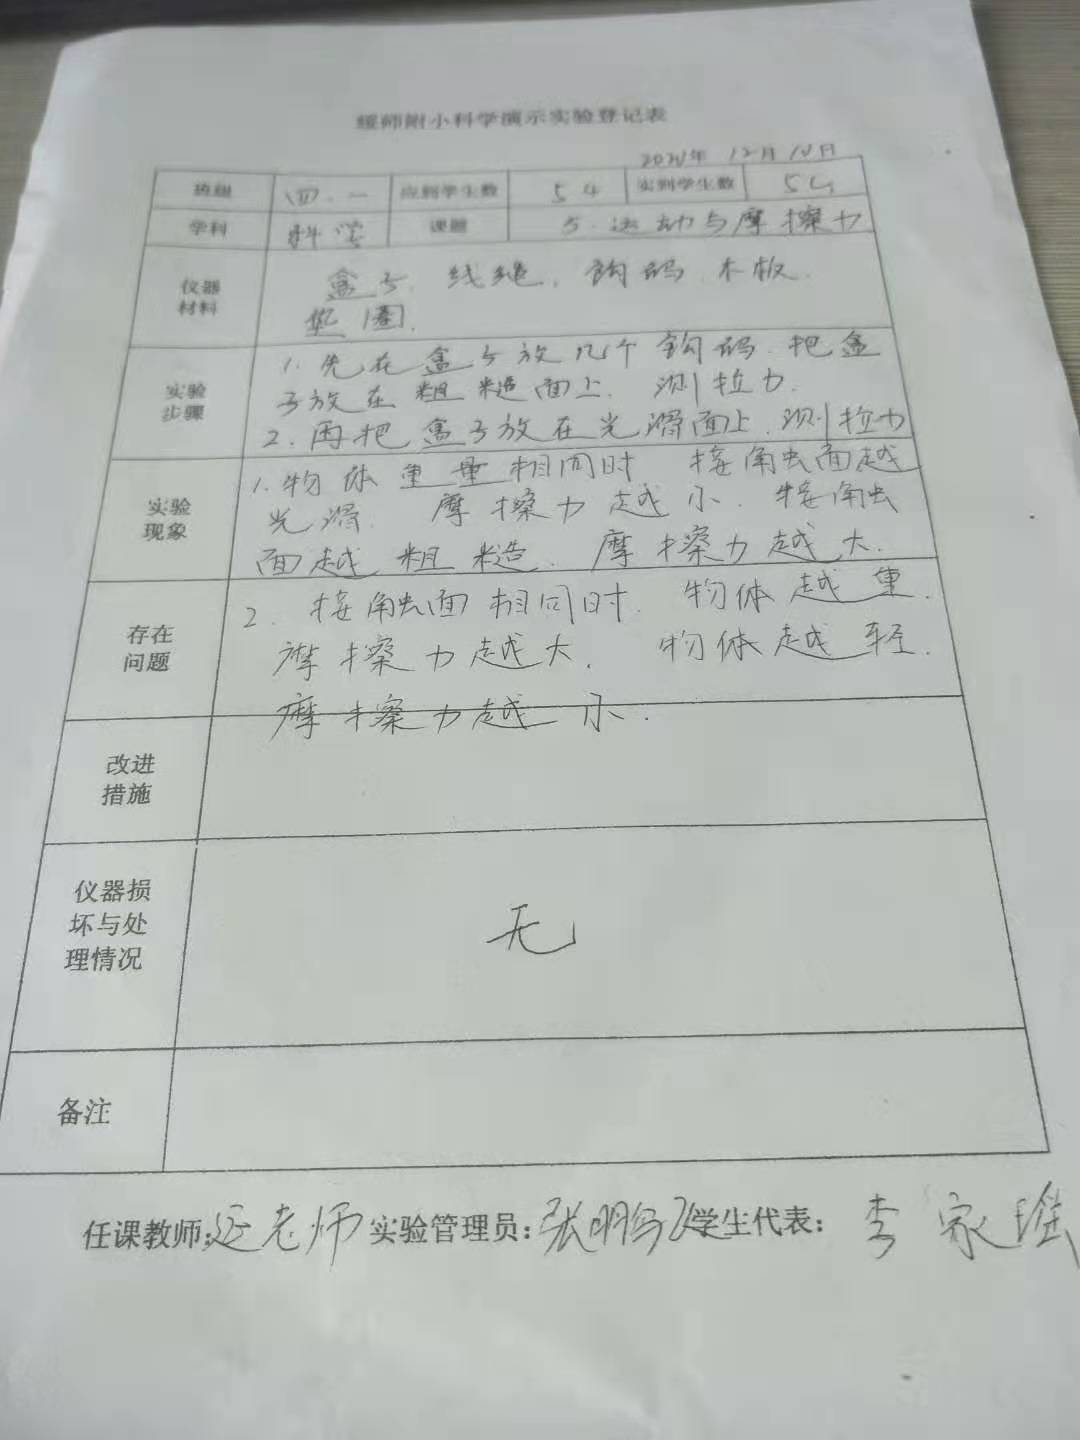 绥师附小科学演示实验登记表
年 12月10日
班级 四.一 应到学生数 54 实到学生数 54
学科 科学 课题 5.运动与摩擦力
仪器材料 盒子.线绳.钩码.木板.
垫圈.
实验步骤 1.先在盒子放几个钩码.把盒
子放在粗糙面上.测拉力.
2.再把盒子放在光滑面上.测拉力
实验现象 1.物体重量相同时 接触面越
光滑.摩擦力越小.接触
面越粗糙.摩擦力越大.
存在问题 2.接触面相同时.物体越重.
摩擦力越大.物体越轻.
摩擦力越小.
改进措施
仪器损坏与处理情况 无
备注
任课教师:延老师 实验管理员:张鹏飞 学生代表: 李家瑶